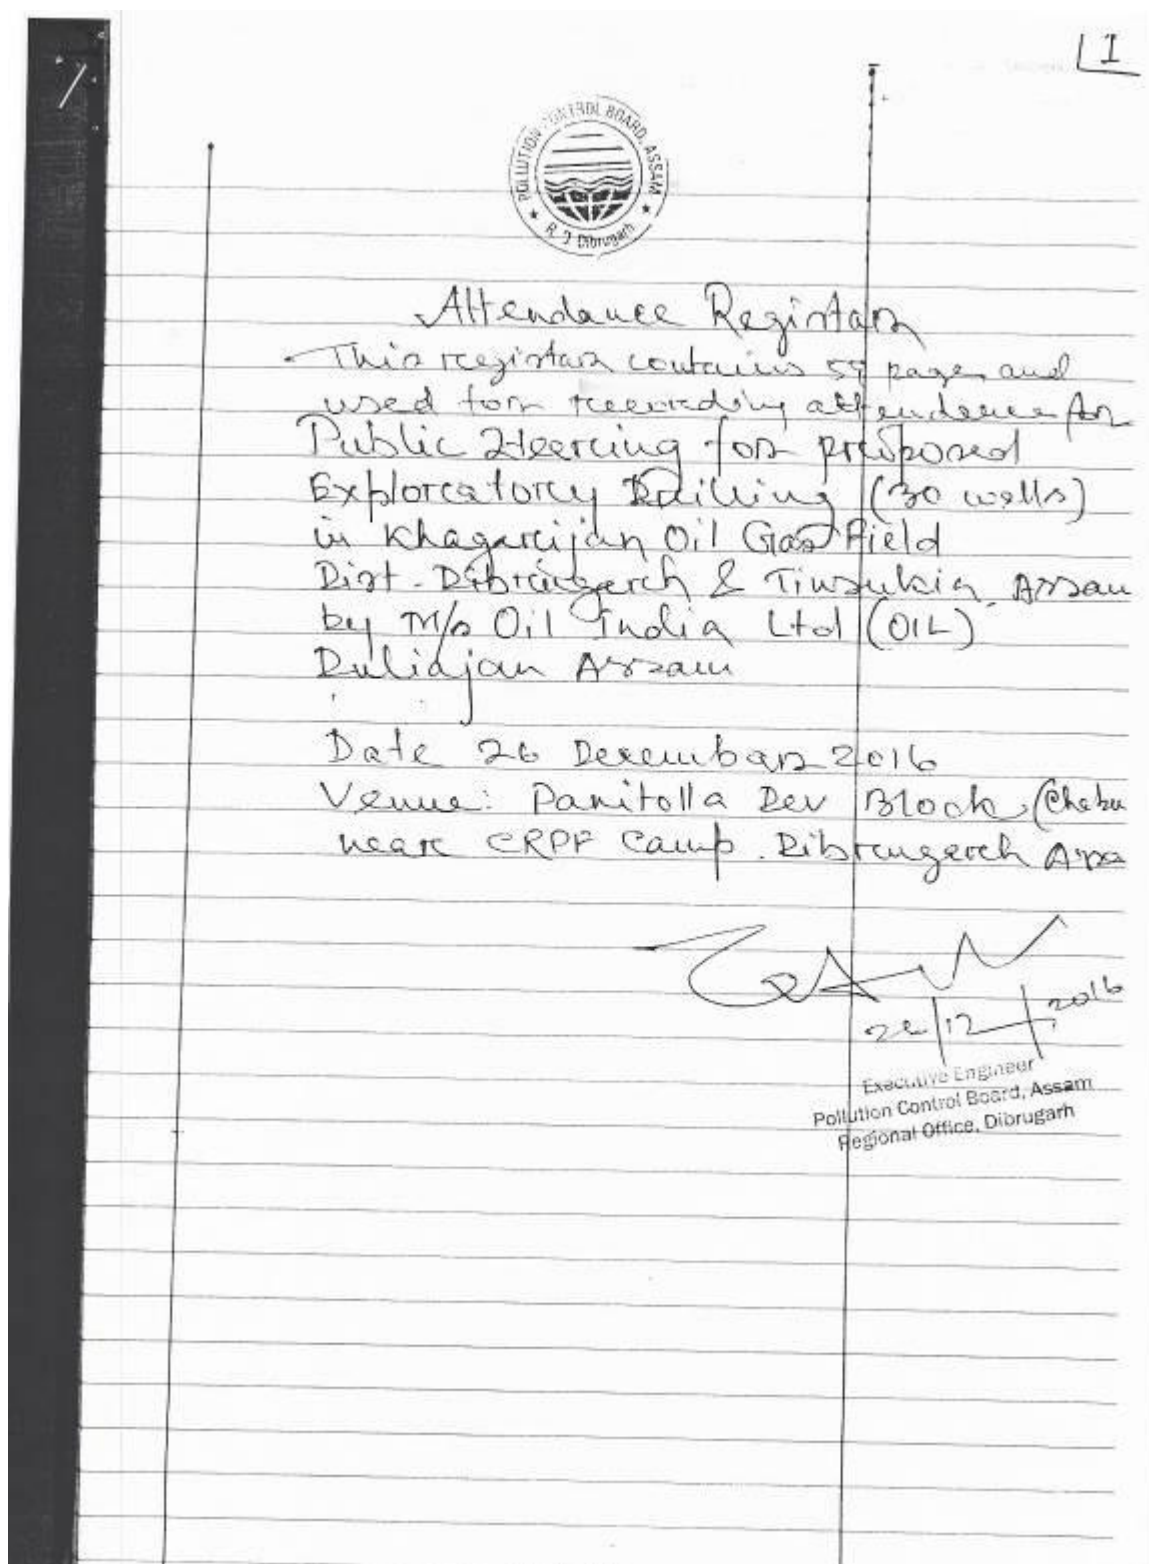 1
POLLUTION CONTROL BOARD, ASSAM
R. O Dibrugarh
Attendance Registar
This registar contains 59 pages and
used for recording attendence for
Public Heering for proposed
Exploratory Drilling (30 wells)
in Khagarijan Oil Gas Field
Dist. Dibrugarh & Tinsukia, Assam
by M/s Oil India Ltd (OIL)
Duliajan Assam
Date 26 Desembar 2016
Venue: Panitolla Dev Block, (Chabu
near CRPF Camp. Dibrugarh Assa
/12/2016
Executive Engineer
Pollution Control Board, Assam
Regional Office, Dibrugarh